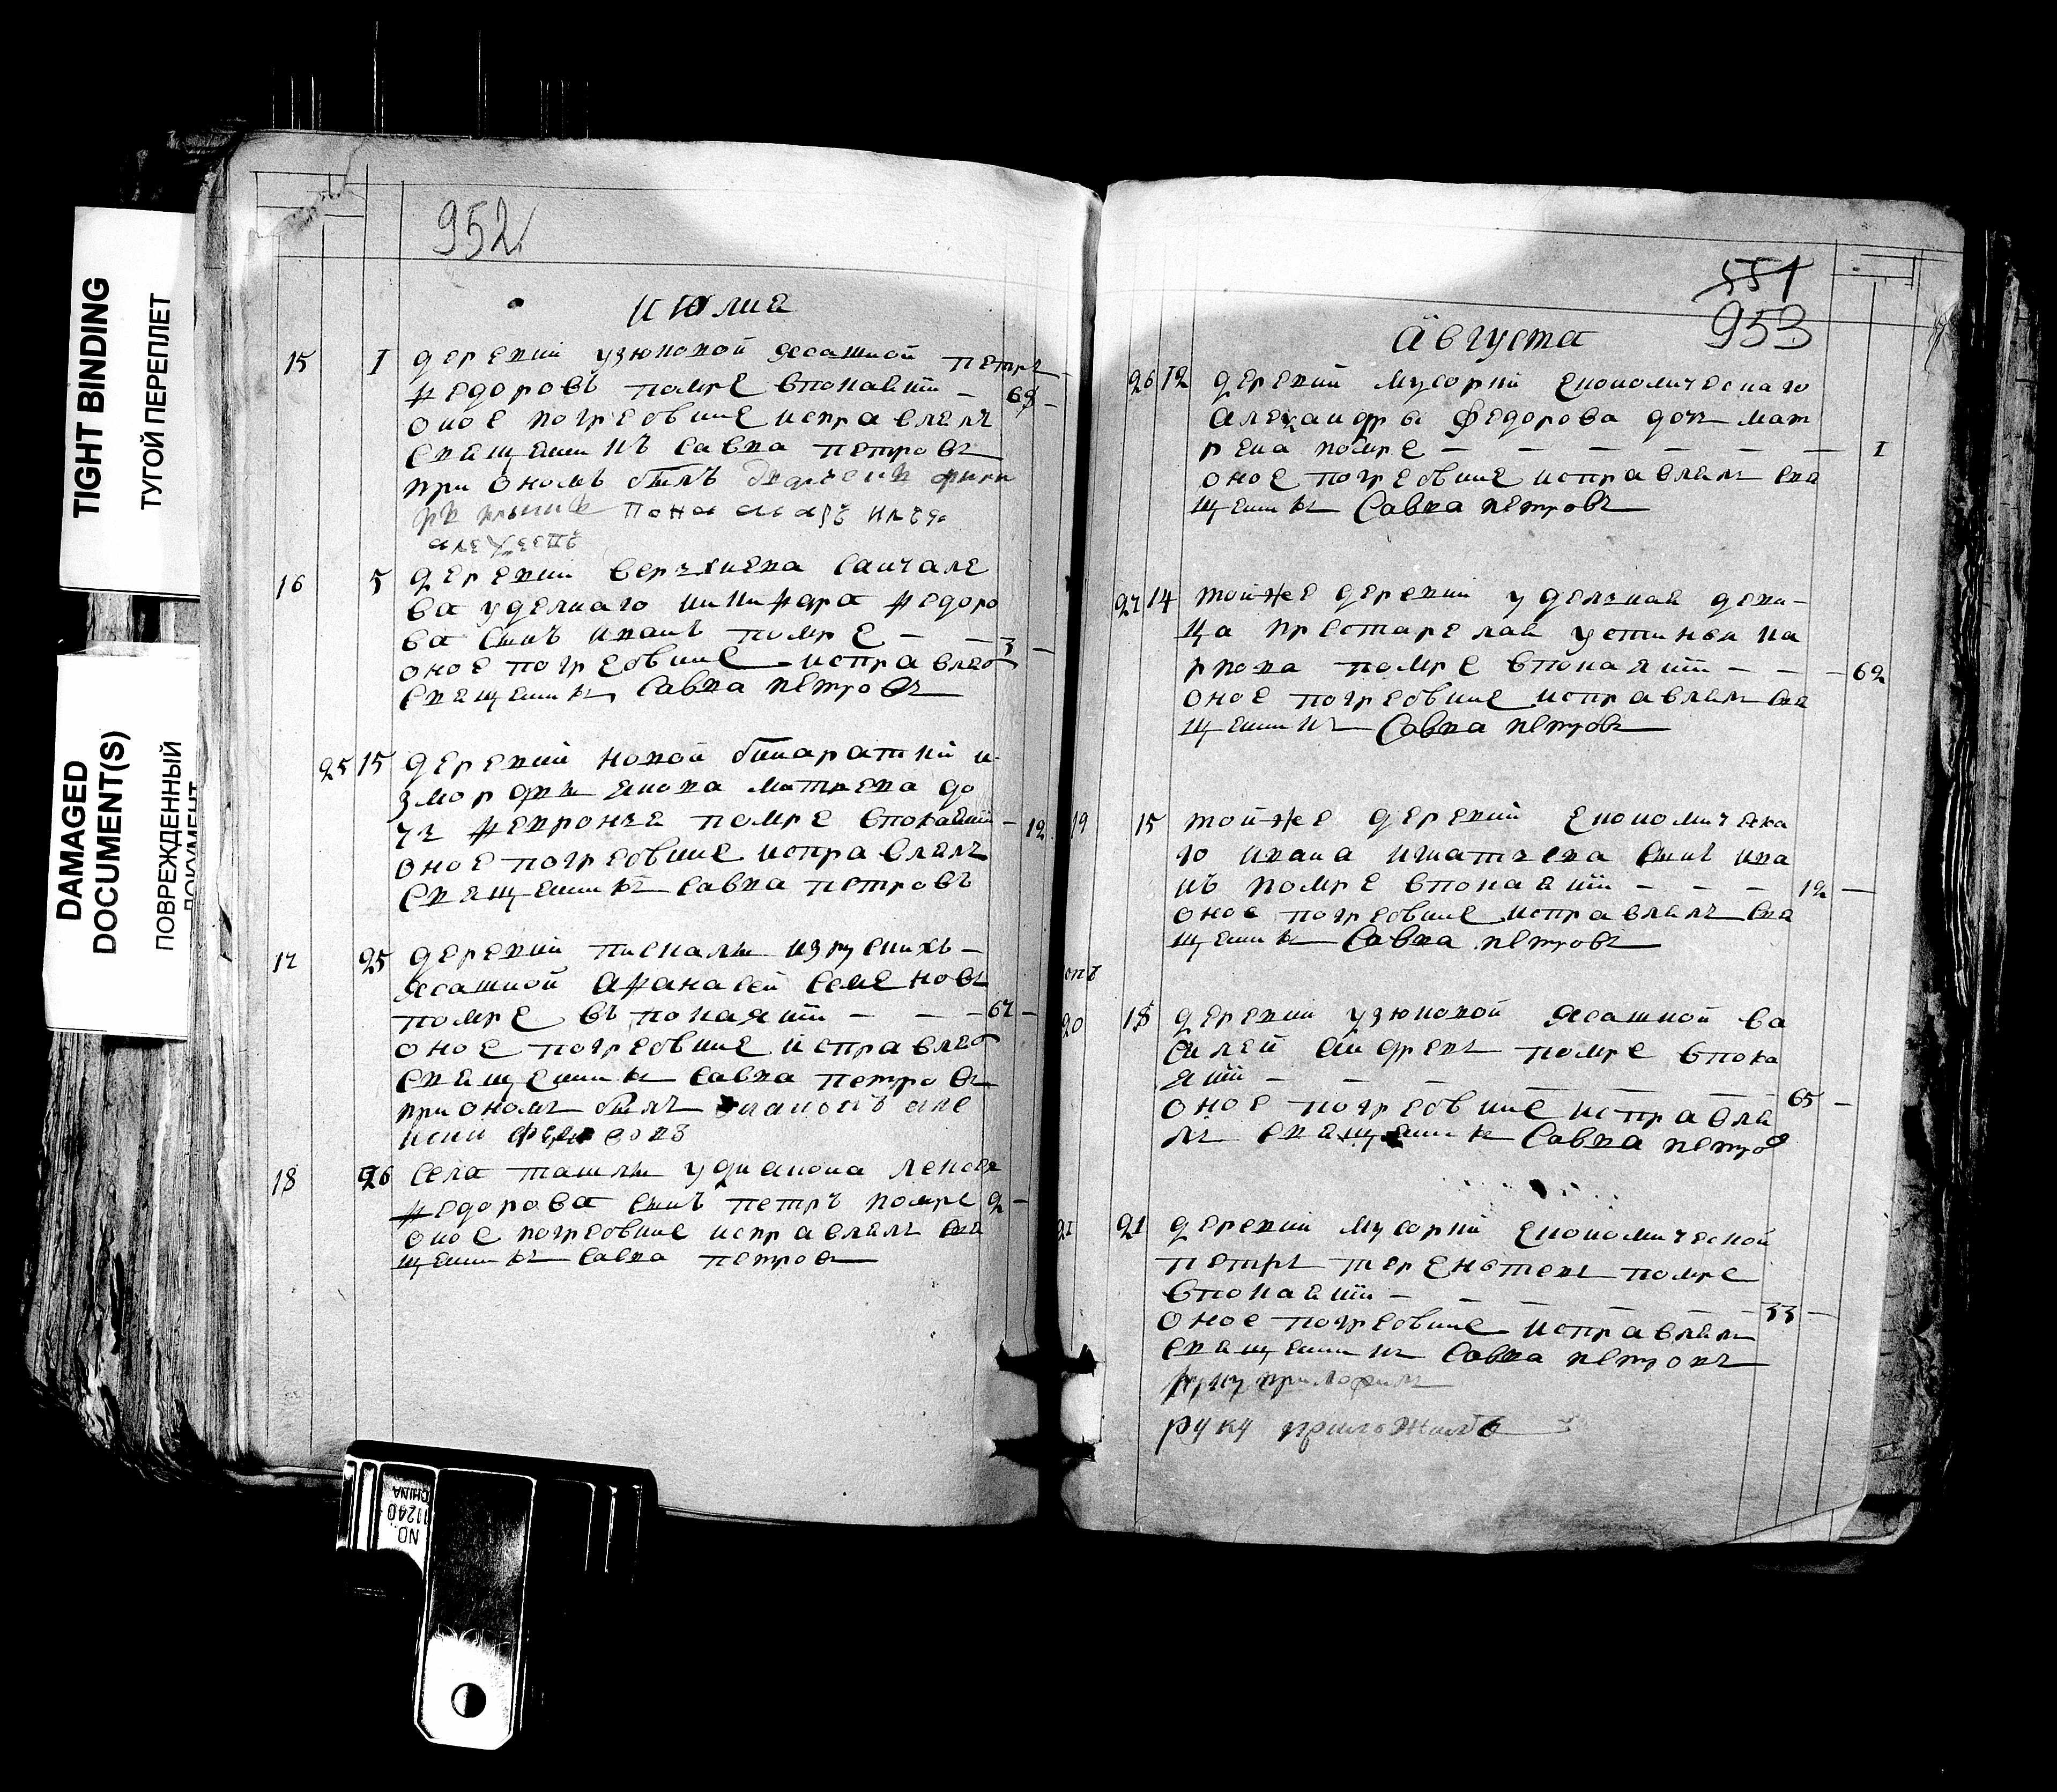 TIGHT BINDING
ТУГОЙ ПЕРЕПЛЕТ
DAMAGED
DOCUMENT(S)
ПОВРЕЖДЕННЫЙ
ДОКУМЕНТ
952
июлиа
15 1 деревни узюковой ясашной петръ
федоровъ помре впокаянии – 68 –
оное погребение исправлялъ
священникъ савва петровъ
при ономъ былъ
понамарь илья
алексеевъ
16 5 деревни верхнева санчале
ва уделнаго никифара федоро
ва сынъ иванъ помре – – 3 –
оное погребение исправлял
священникъ савва петровъ
25 15 деревни новой бинаратки и
змордвы якова матвева до
чь февронья помре впокаянии – 12
оное погребение исправлялъ
священникъ савва петровъ
17 25 деревни пискалы изрускихъ –
ясашной афанасей семеновъ
помре въ покаянии – – – 67 –
оное погребение исправлял
священникъ савва петровъ
приономъ былъ
18 26 села ташлы
федорова сынъ петръ помре 2 –
оное погребение исправлялъ свя
щенникъ савва петровъ
551
953
августа
26 12 деревни мусорки економическаго
александры федорова дочь мат
рена помре – – – – – – 1
оное погребение исправлялъ свя
щенникъ савва петровъ
27 14 тойже деревни уделная деви–
ца престарелая устинья ма
ркова помре впокаянии – – – 62
оное погребение исправлялъ свя
щенникъ савва петровъ
19 15 тойже деревни економическа
го ивана игнатьева сынъ ива
нъ помре впокаянии – – – 12 –
оное погребение исправлялъ свя
щенникъ савва петровъ
20 18 деревни узюковой ясашной ва
силей андреевъ помре впока
янии – – – – – – 65 –
оное погребение исправля
лъ священникъ савва петров
21 21 деревни мусорки економической
петръ терентевъ помре
впокаянии – – – – – – 33 –
оное погребение исправлялъ
священникъ савва петровъ
руку приложилъ
руку приложилъ
NO.
11240
CHINA